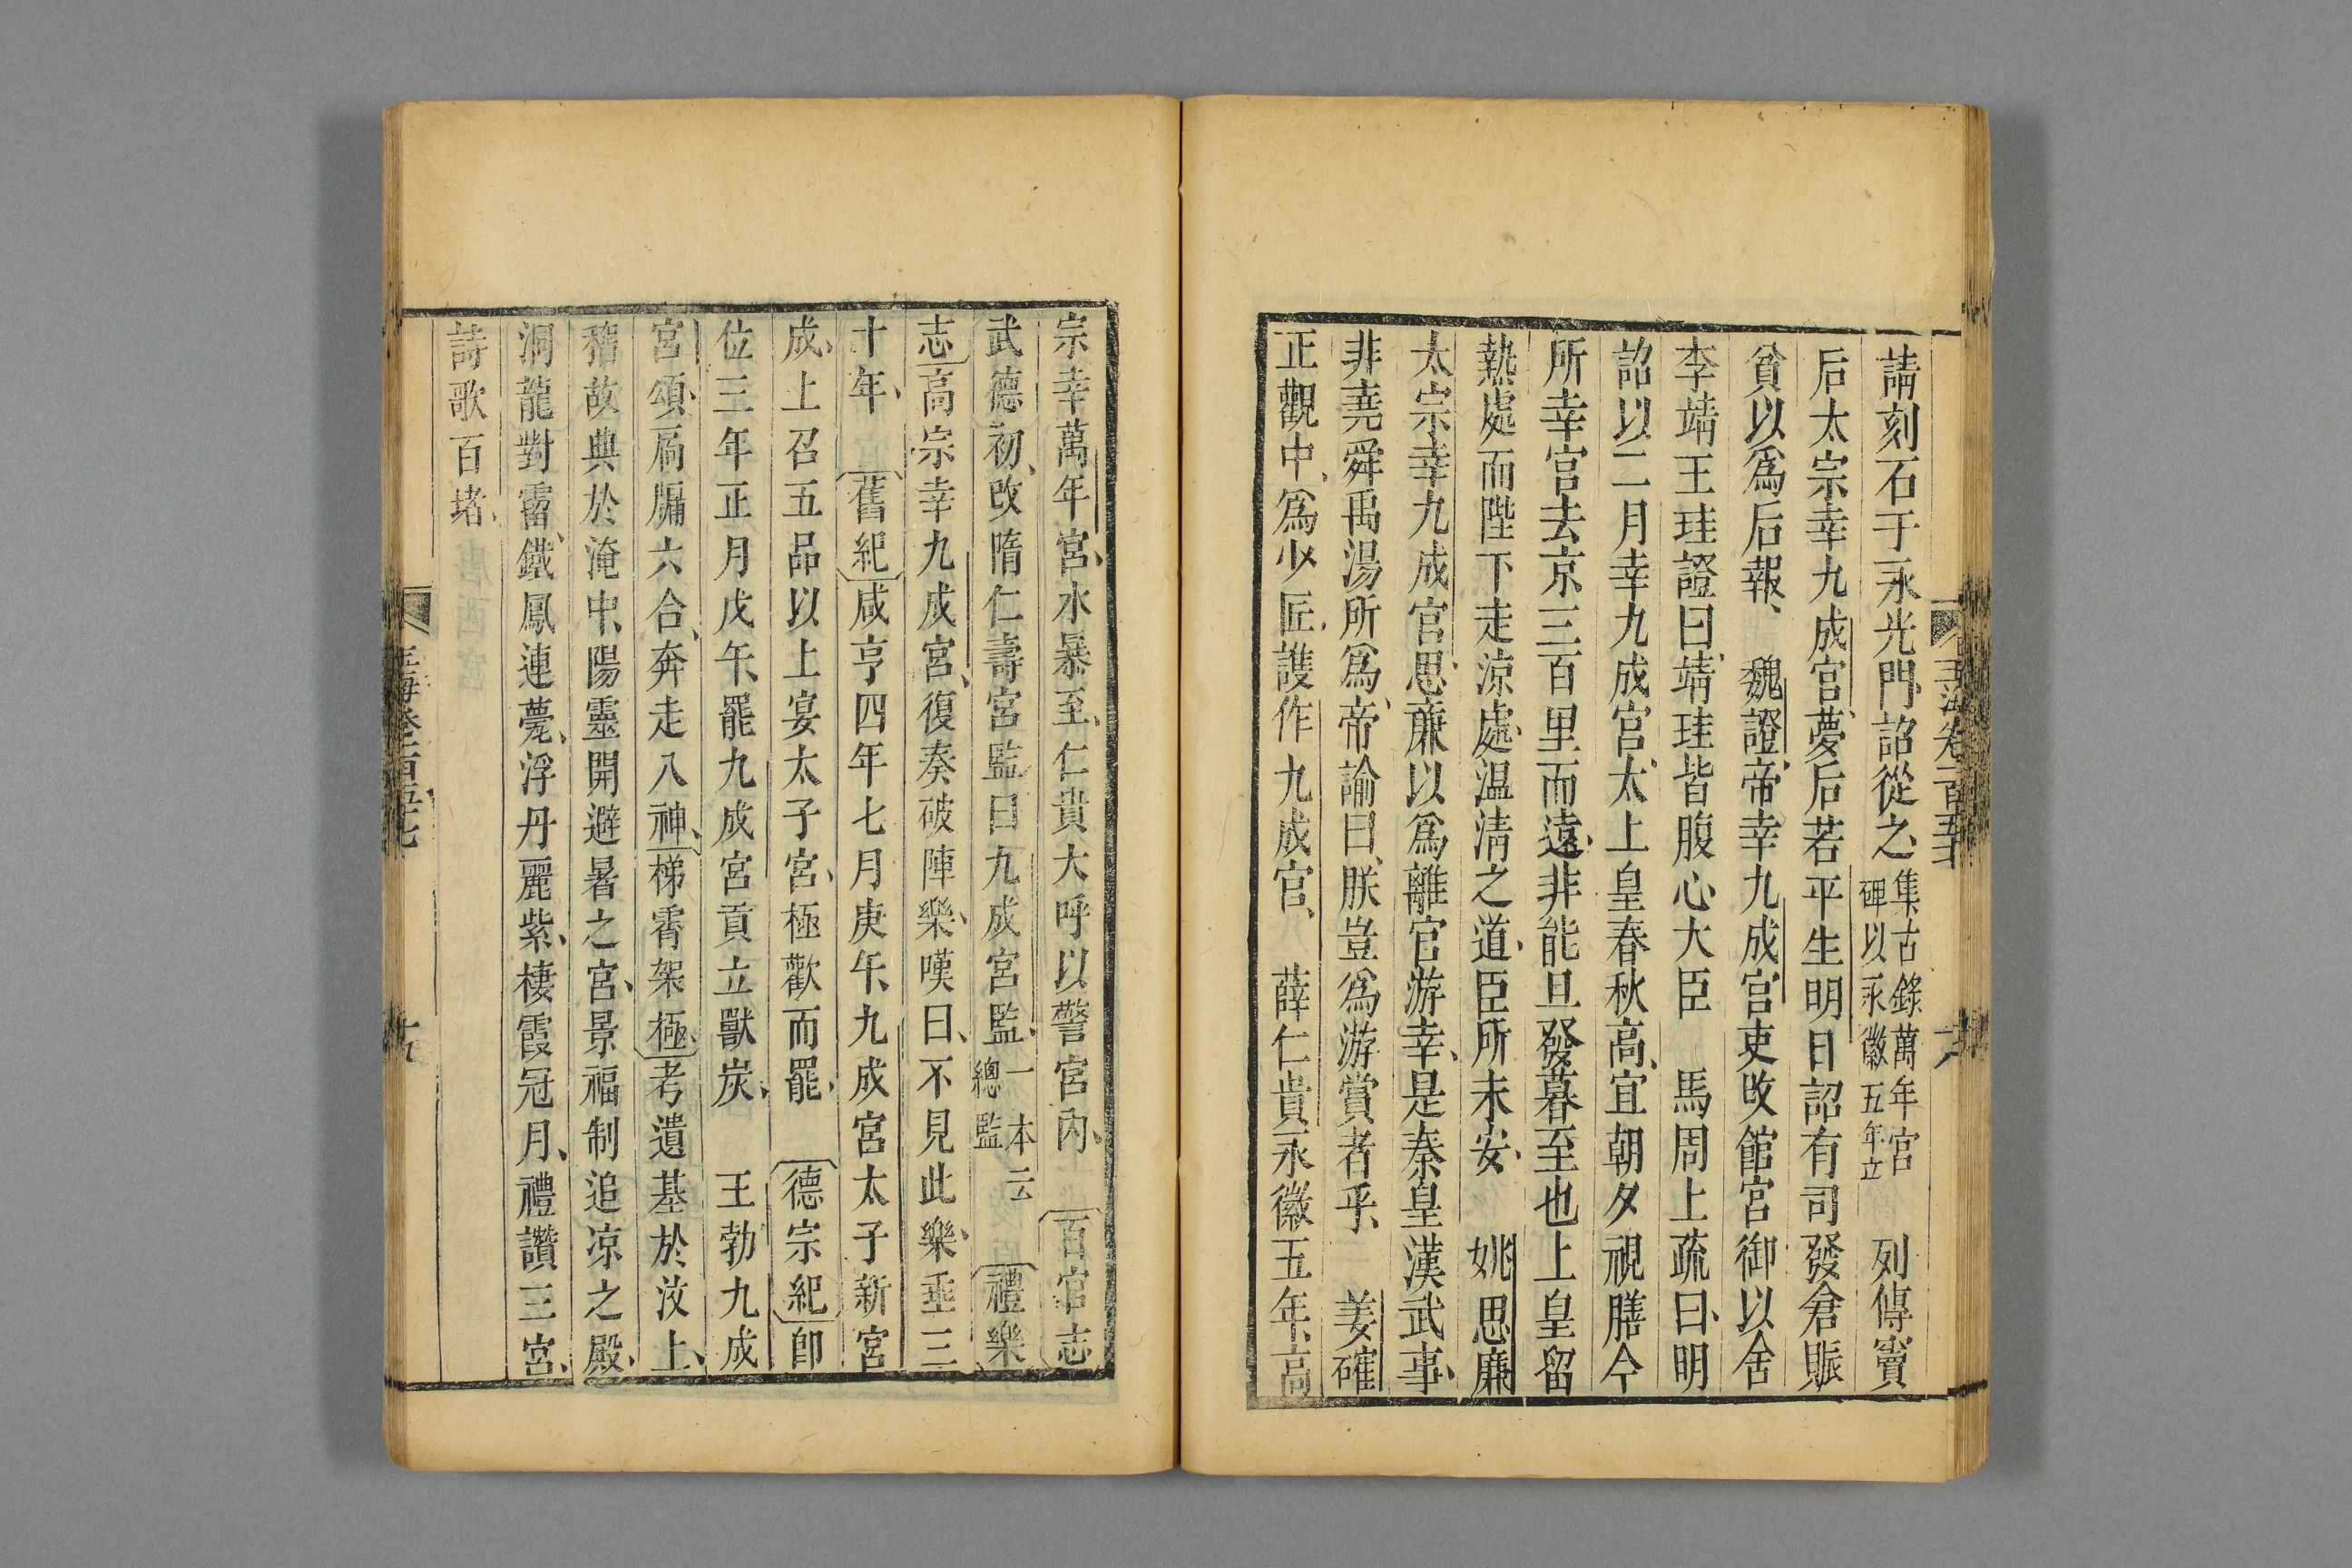 請刻石于永光門詔從之集古錄萬年宮碑以永徽五年立 列傳竇
后太宗幸九成宮夢后若平生明日詔有司發倉賑
貧以爲后報 魏證帝幸九成宮吏改館宮御以舍
李靖王珪證曰靖珪皆腹心大臣 馬周上疏曰明
詔以二月幸九成宮太上皇春秋高宜朝夕視膳今
所幸宮去京三百里而遠非能旦發暮至也上皇留
熱處而陛下走涼處温淸之道臣所未安 姚思廉
太宗幸九成宮思廉以爲離宮游幸是秦皇漢武事
非堯舜禹湯所爲帝諭曰朕豈爲游賞者乎 姜確
正觀中爲少匠護作九成宮 薛仁貴永徽五年高
宗幸萬年宮水暴至仁貴大呼以警宮內 百官志
武德初改隋仁壽宮監曰九成宮監一本云總監 禮樂
志高宗幸九成宮復奏破陣樂嘆曰不見此樂垂三
十年 舊紀咸亨四年七月庚午九成宮太子新宮
成上召五品以上宴太子宮極歡而罷 德宗紀卽
位三年正月戊午罷九成宮貢立獸炭 王勃九成
宮頌扃牖六合奔走八神梯霄架極考遺基於汶上
稽故典於淹中陽靈開避暑之宮景福制追凉之殿
洞龍對霤鐵鳳連甍浮丹麗紫棲霞冠月禮讚三宮
詩歌百堵